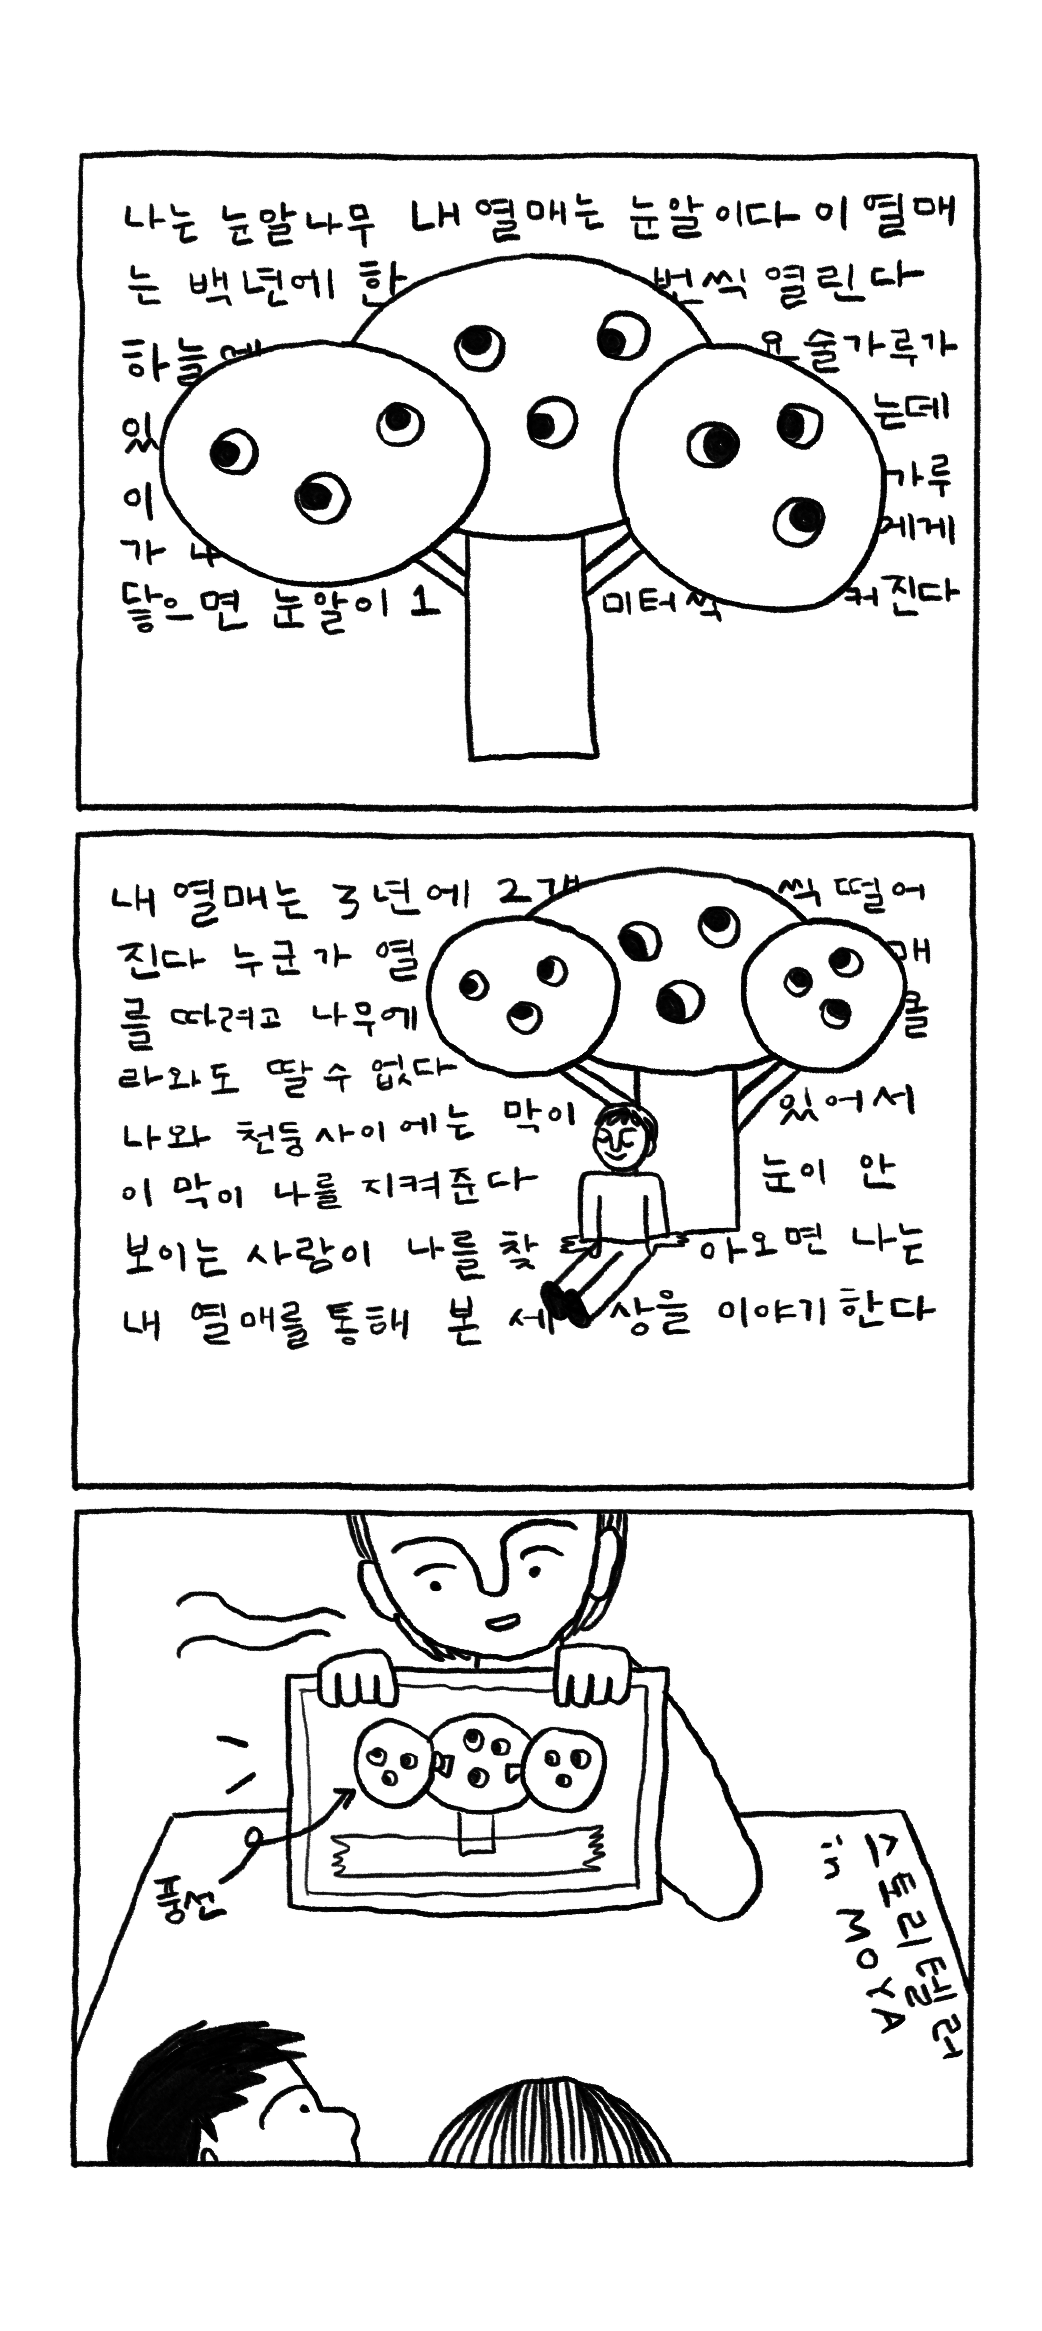 나는 눈알나무 내 열매는 눈알이다 이 열매
는 백년에 한 번씩 열린다
하늘에 요술가루가
있 는데
이 가루
가 나 에게
닿으면 눈알이 1 미터씩 커진다
내 열매는 3년에 2개 씩 떨어
진다 누군가 열 매
를 따려고 나무에 올
라와도 딸 수 없다
나와 천둥사이에는 막이 있어서
이 막이 나를 지켜준다 눈이 안
보이는 사람이 나를 찾 아오면 나는
내 열매를 통해 본 세 상을 이야기한다
풍선
스토리텔러
in MOYA